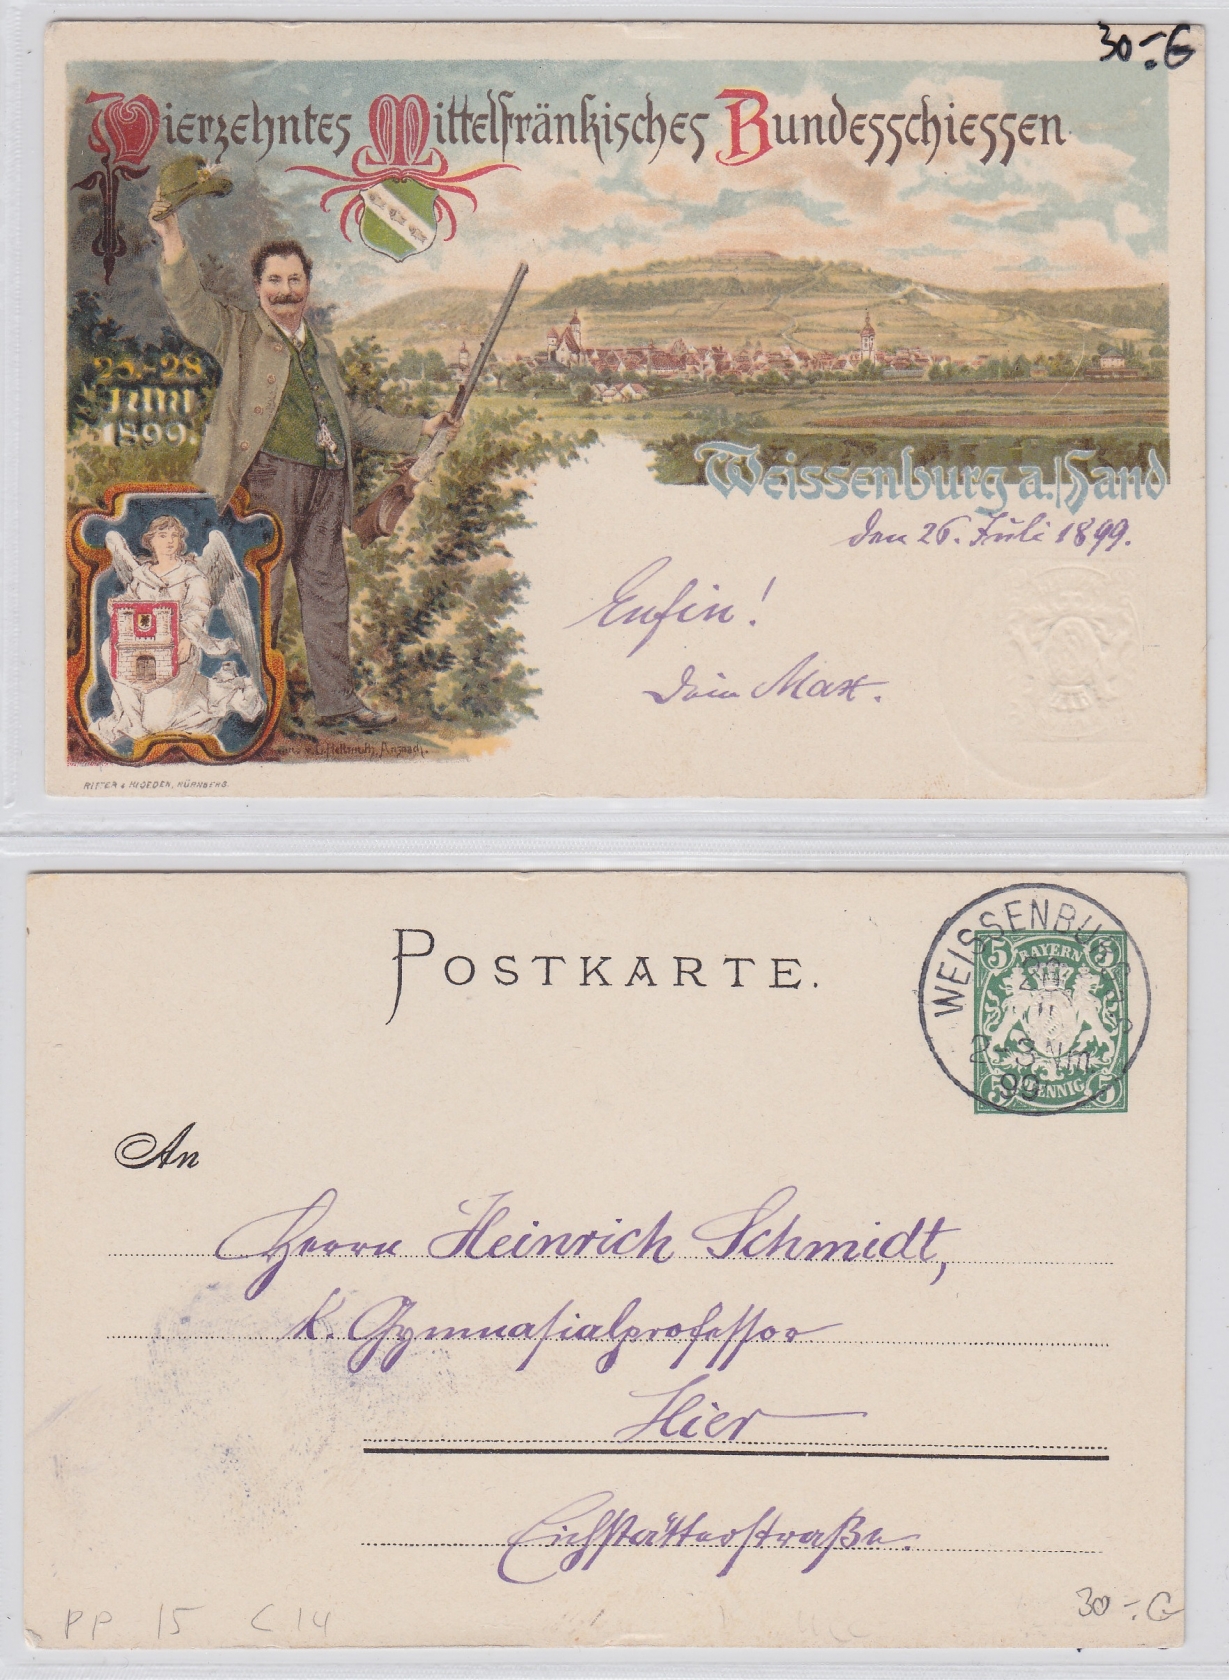 30.-G
Vierzehntes Mittelfränkisches Bundesschiessen
25.-28.
JUNI
1899.
Weissenburg a./Sand
den 26. Juli 1899.
Enfin!
Dein Max.
Ansbach.
RITTER & KLOEDEN, NÜRNBERG.
POSTKARTE.
WEISSENBURG
2-3 Nm
99
5 BAYERN 5
5 PFENNIG 5
An
Herrn Heinrich Schmidt,
K. Gymnasialprofessor
Hier
Eichstätterstraße.
PP 15 C 14
30.-G